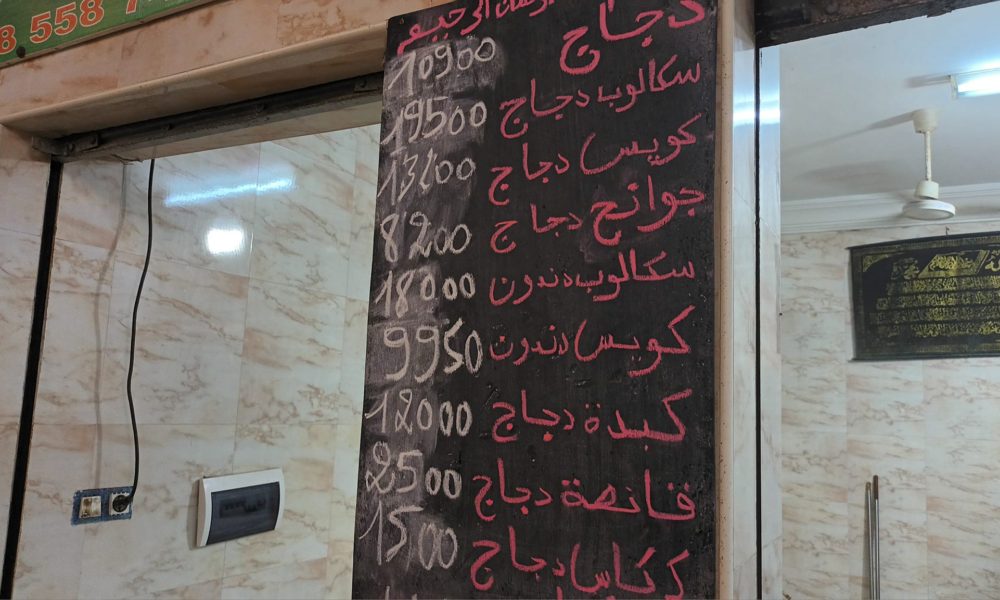 8 558 7
الرحمن الرحيم
دجاج 10900
سكالوب دجاج 19500
كويس دجاج 13400
جوانح دجاج 8200
سكالوب دندون 18000
كويس دندون 9950
كبدة دجاج 12000
قانصة دجاج 2500
كركاس دجاج 1500